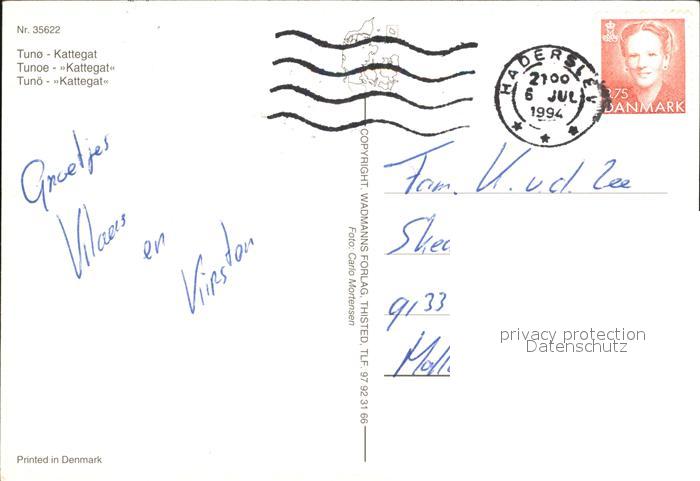 Nr. 35622
Tunø - Kattegat
Tunoe - »Kattegat«
Tunö - »Kattegat«
Groetjes
Klaas
en
Kirsten
Printed in Denmark
COPYRIGHT. WADMANNS FORLAG, THISTED, TLF. 97 92 31 66
Foto: Carlo Mortensen
HADERSLEV
2100
6 JUL
1994
3.75
DANMARK
Fam. K. v.d. Zee
9133
privacy protection
Datenschutz